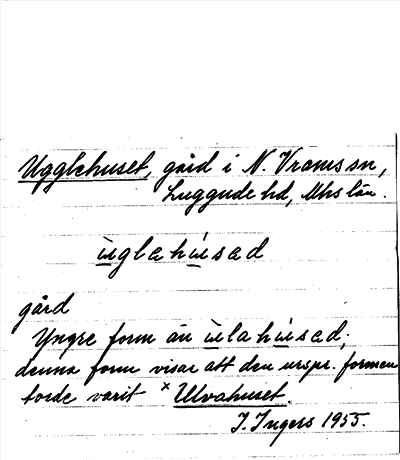 Ugglehuset, gård i N. Vrams sn,
Luggude hd, Mhs län.
ùglahúsad
gård
Yngre form än ùlahúsad;
denna form visar att den urspr. formen
torde varit ˣUlvahuset.
I. Ingers 1955.